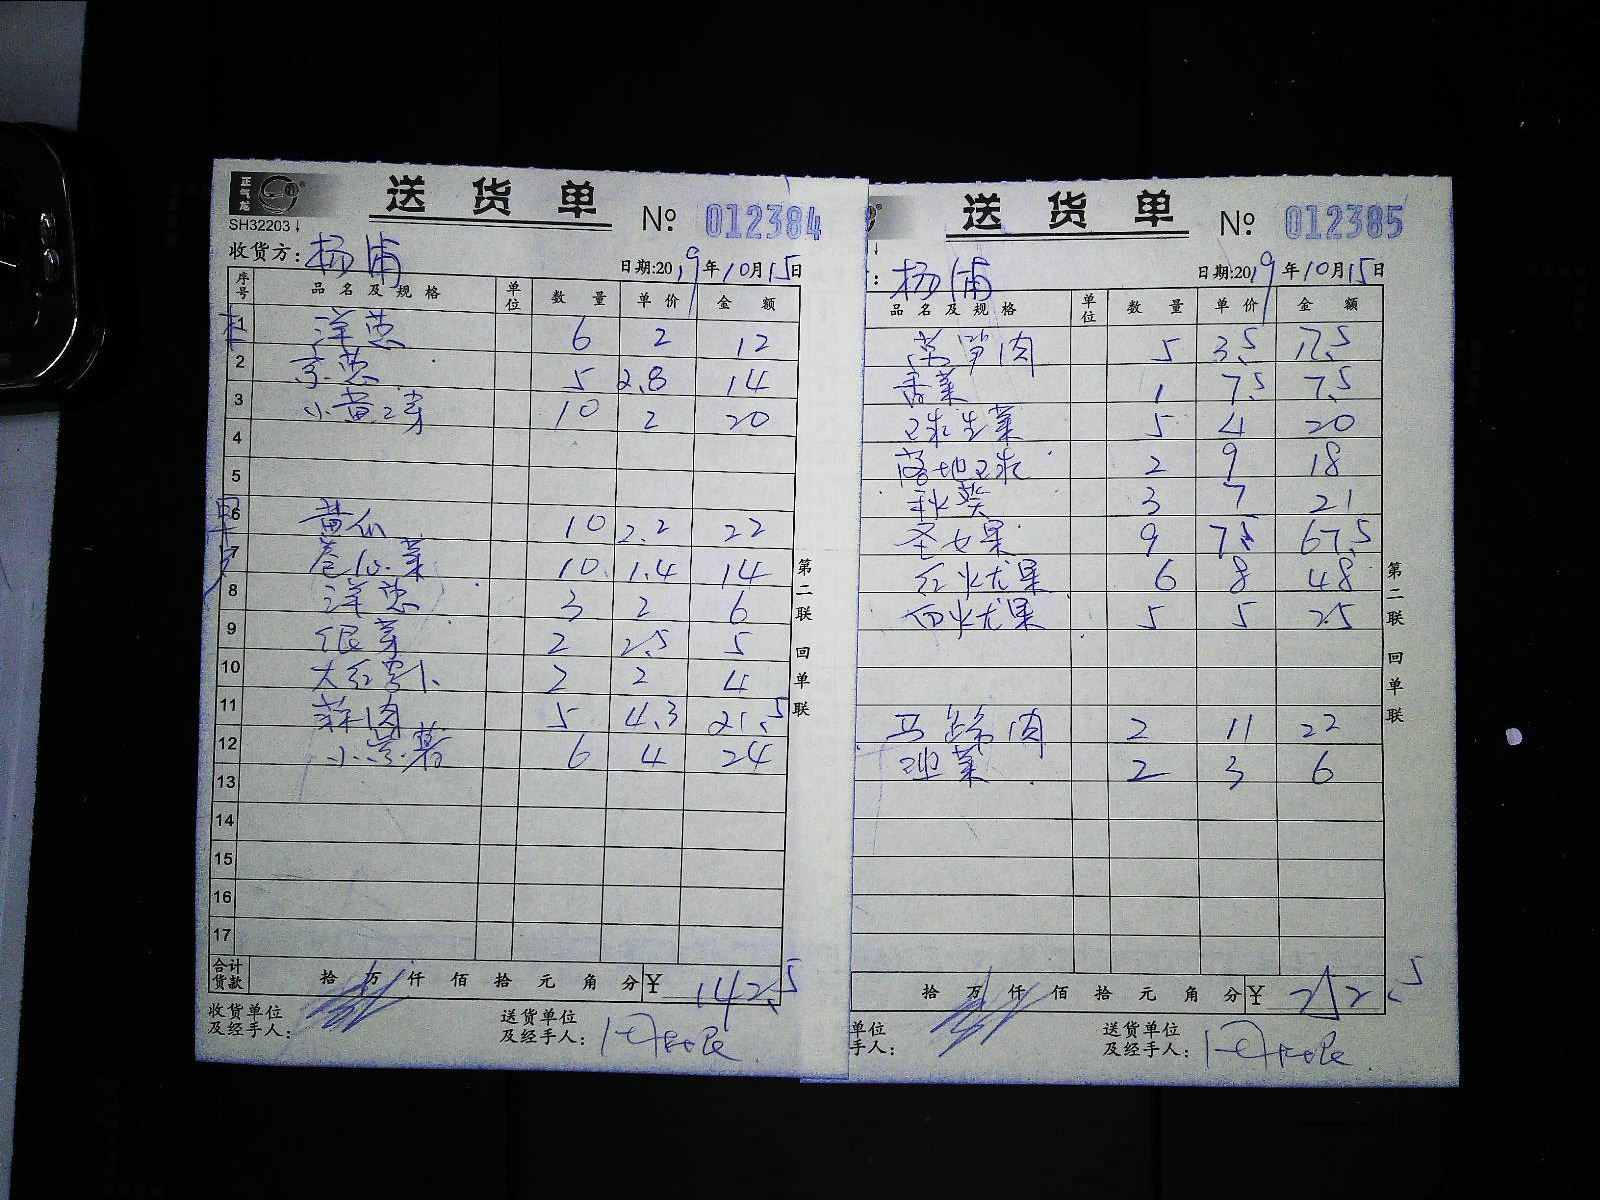 正气龙
送货单
SH32203
№ 012384
收货方：杨浦
日期:2019年10月15日
序号 品名及规格 单位 数量 单价 金额
洋葱 6 2 12
2 京葱 5 2.8 14
3 小黄芽 10 2 20
4
5
6 黄瓜 10 2.2 22
7 卷心菜 10 1.4 14
8 洋葱 3 2 6
9 银芽 2 2.5 5
10 大红萝卜 2 2 4
11 蒜肉 5 4.3 21.5
12 小紫薯 6 4 24
13
14
15
16
17
合计货款 拾万仟佰拾元角分 ¥ 142.5
收货单位及经手人：
送货单位及经手人：
第二联 回单联
送货单
№ 012385
：杨浦
日期:2019年10月15日
品名及规格 单位 数量 单价 金额
莴笋肉 5 3.5 17.5
香菜 1 7.5 7.5
球生菜 5 4 20
落地球 2 9 18
秋葵 3 7 21
圣女果 9 7.5 67.5
红火龙果 6 8 48
白火龙果 5 5 25
马蹄肉 2 11 22
菜 2 3 6
拾万仟佰拾元角分 ¥ 252.5
单位
手人：
送货单位及经手人：
第二联 回单联